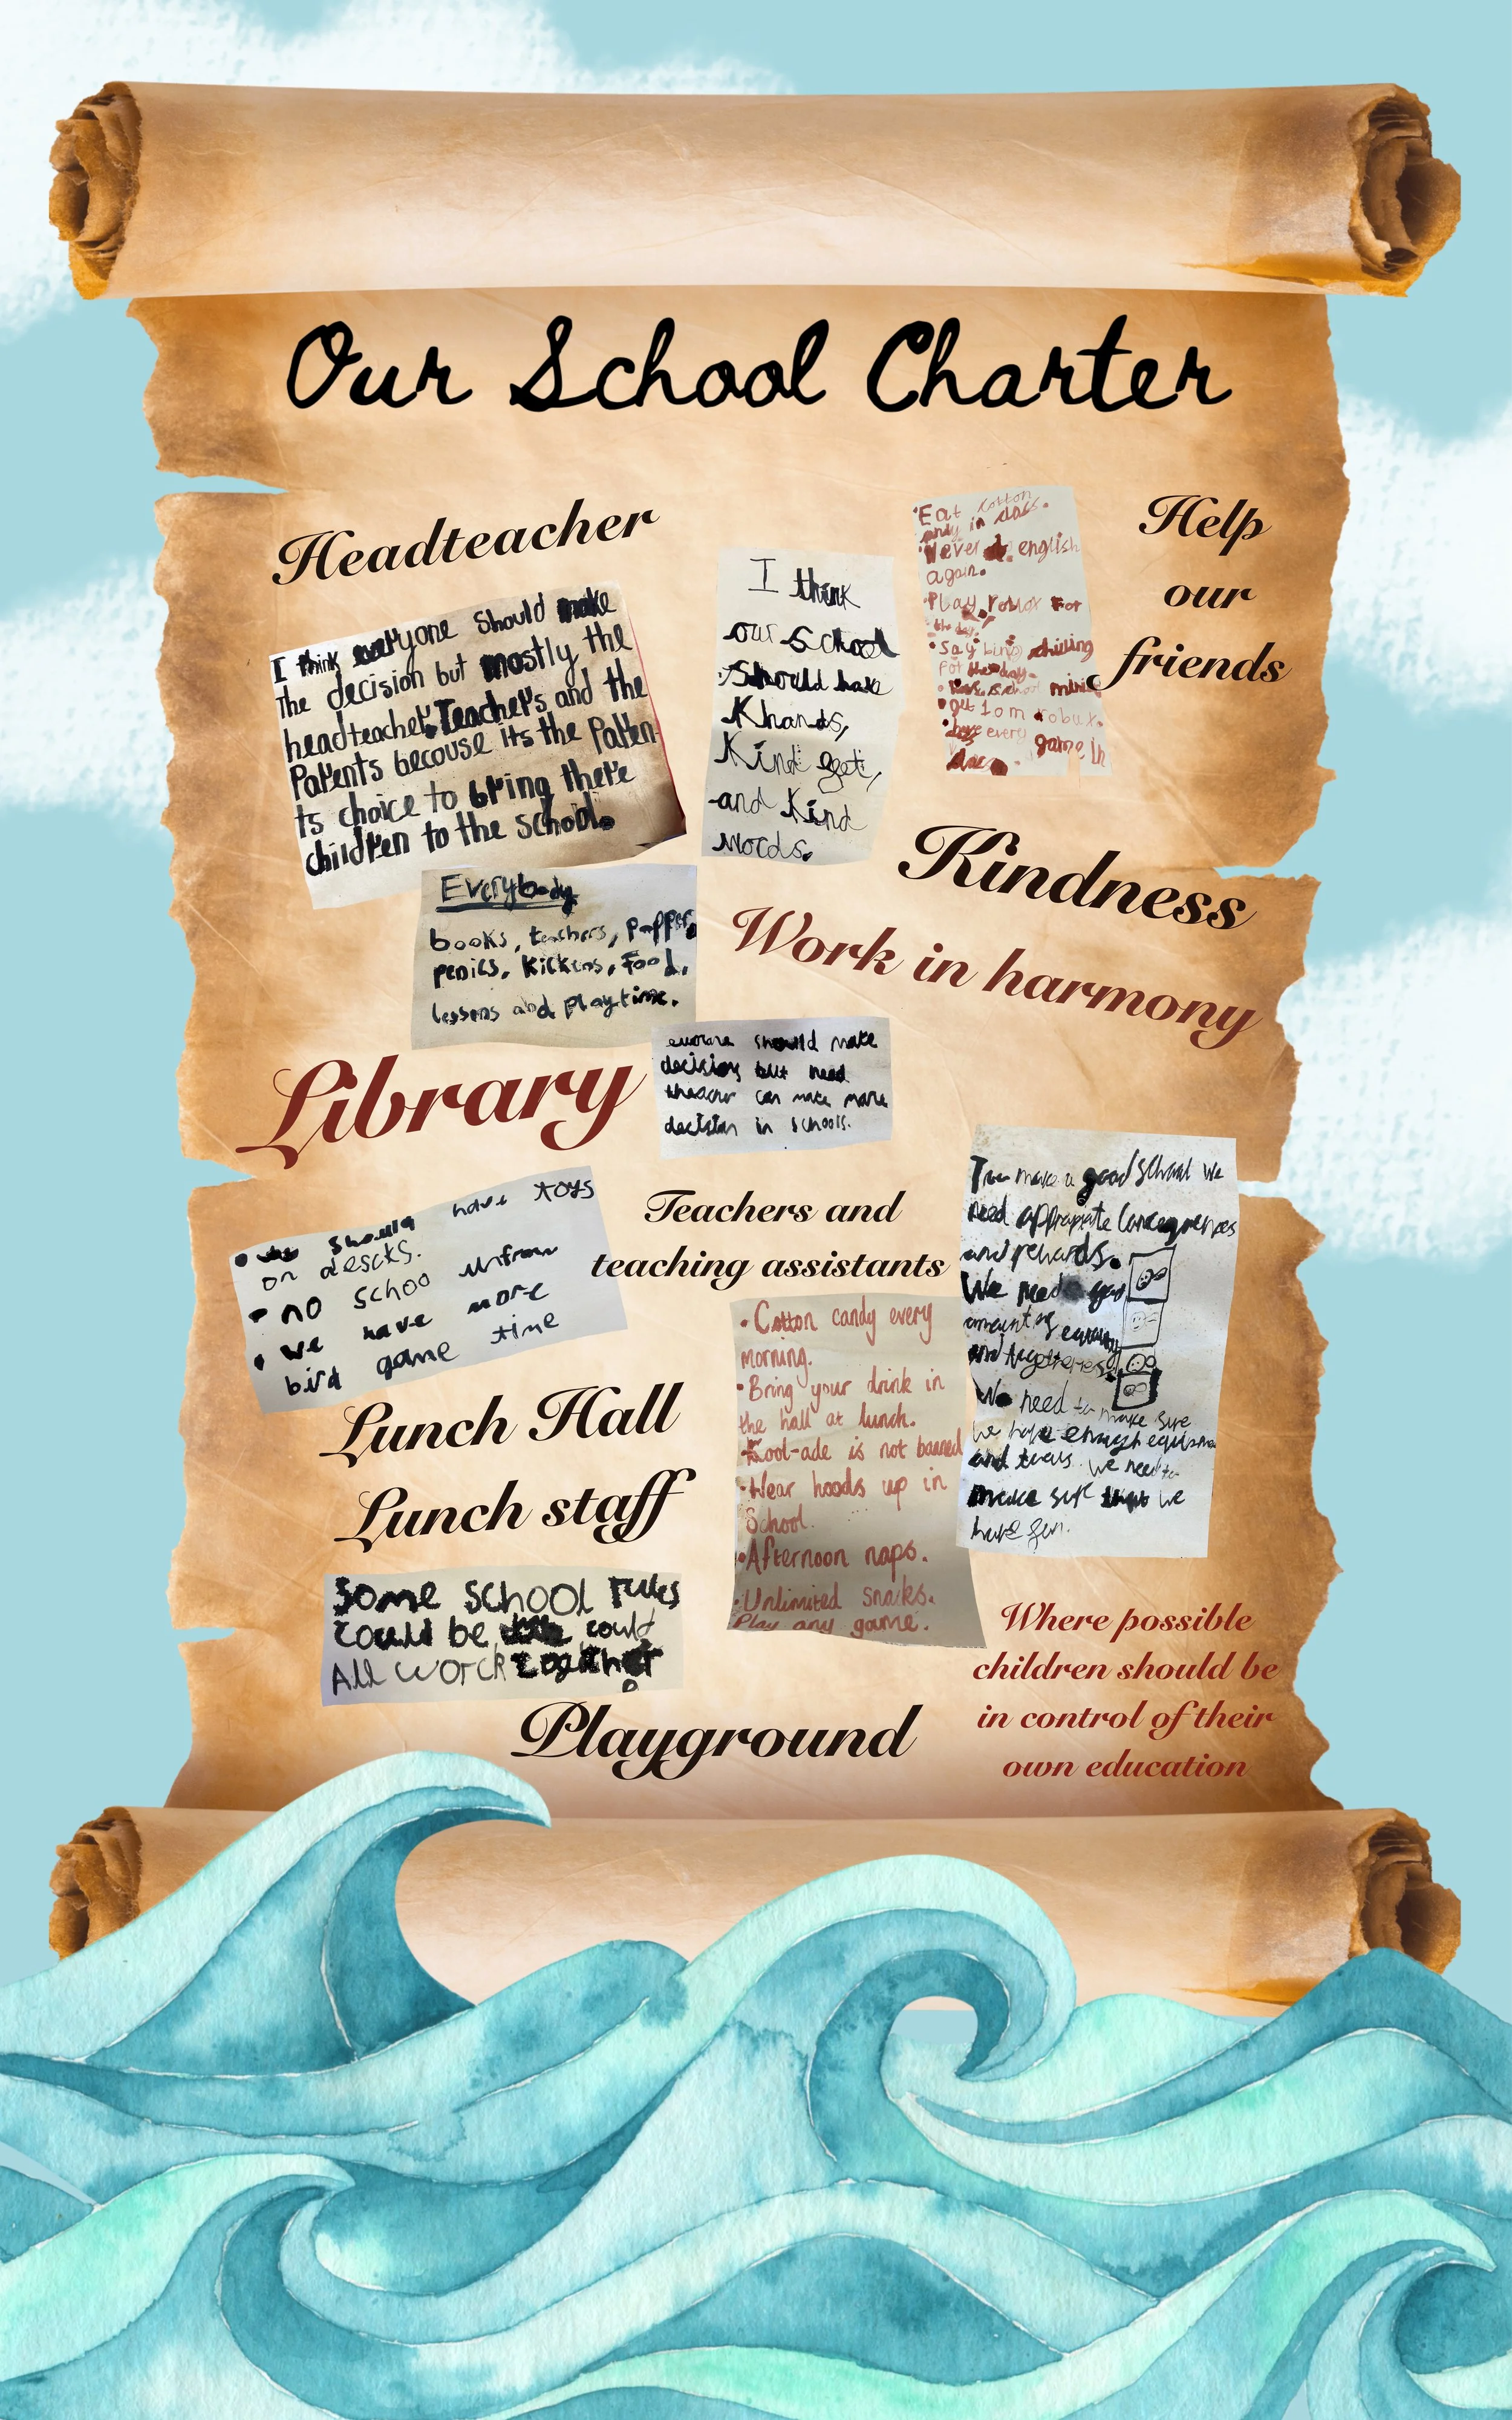 Our School Charter
Headteacher
I think everyone should make
The decision but mostly the
headteacher, Teacher's and the
Parents becouse its the Paren-
ts choice to bring there
children to the school.
I think
our School
Should have
Khands,
Kind
and Kind
words.
Eat cotton
in class.
Never english
again.
Play roblox For
the day.
Say chilling
For the day.
school
get 10m robux.
have every game in
Help
our
friends
Kindness
Work in harmony
Everybody
books, teachers, papper,
penics, kickens, Food,
lessons abd playtime.
Library
should make
decisions but need
can make more
decision in schools.
should have toys
on descks.
no schoo unfrom
we have more
bird game time
Teachers and
teaching assistants
Cotton candy every
morning.
Bring your drink in
the hall at lunch.
Kool-ade is not banned
Wear hoods up in
School.
Afternoon naps.
Unlimited snaks.
Play any game.
make a good School we
need
and rewards.
We need
amount of
and
We need to make sure
we have enough
and We need to
make sure that we
have fun.
Lunch Hall
Lunch staff
Some school rules
could be could
All worck together
Playground
Where possible
children should be
in control of their
own education